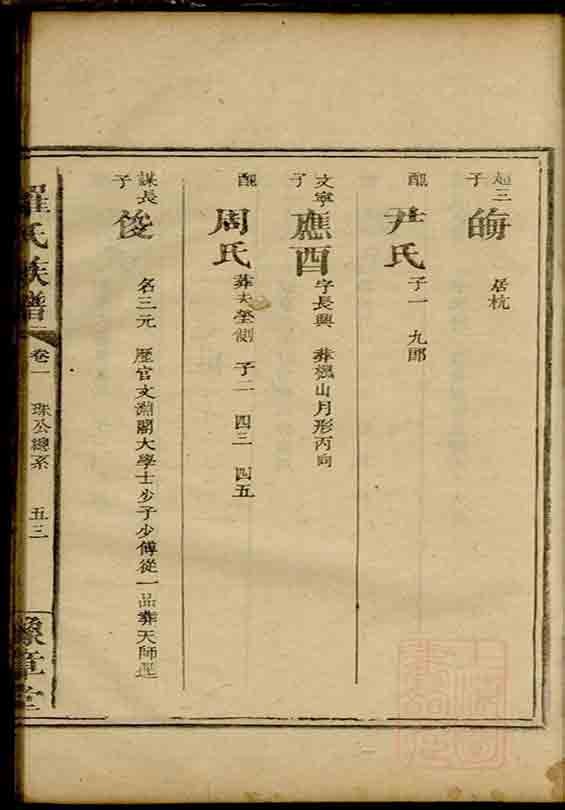 超三子 㑄 居杭
配 尹氏 子一 九郎
文寧子 應酉 字長興 葬楓山月形丙向
配 周氏 葬夫塋側 子二 四三 四五
謀長子 俊 名三元 歷官文淵閣大學士少子少傅從一品葬天師運
羅氏族譜 卷一 珠公總系 五三 豫章堂